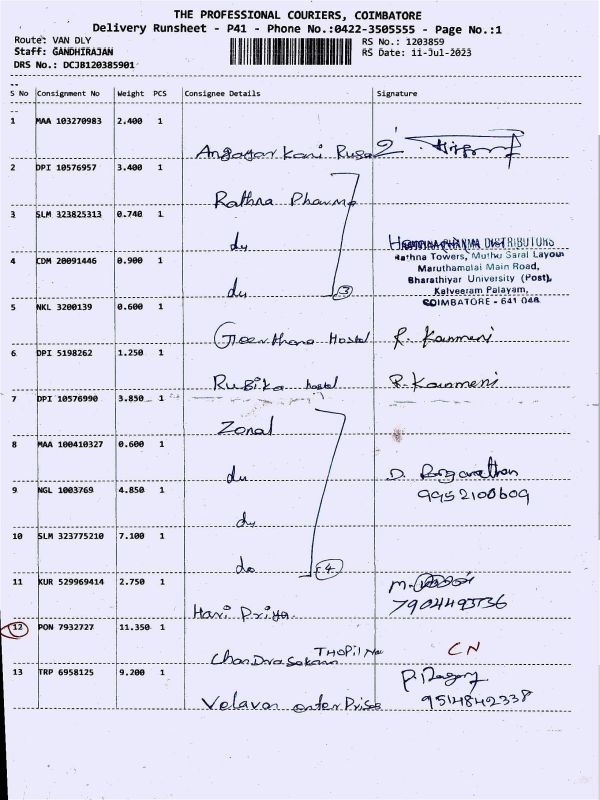 THE PROFESSIONAL COURIERS, COIMBATORE
Delivery Runsheet - P41 - Phone No.:0422-3505555 - Page No.:1
Route: VAN DLY
RS No.: 1203859
Staff: GANDHIRAJAN
RS Date: 11-Jul-2023
DRS No.: DCJB120385901
S No Consignment No Weight PCS Consignee Details Signature
1 MAA 103270983 2.400 1
Angayar Kani
2 DPI 10576957 3.400 1
Rathna Pharma
3 SLM 323825313 0.740 1
du
RATHNA PHARMA DISTRIBUTORS
Rathna Towers, Muthu Saral Layout
4 CDM 20091446 0.900 1
Maruthamalai Main Road,
Bharathiyar University (Post),
du
3
Kalveeram Palayam,
COIMBATORE - 641 046
5 NKL 3200139 0.600 1
Geerthana Hostel R. Kanmani
6 DPI 5198262 1.250 1
Rubika hostel R. Kanmani
7 DPI 10576990 3.850 1
Zonal
8 MAA 100410327 0.600 1
du
D.
9952100609
9 NGL 1003769 4.850 1
du
10 SLM 323775210 7.100 1
do
4
11 KUR 529969414 2.750 1
M.
7904493536
Hari Priya
12 PON 7932727 11.350 1
Chandrasekaran
CN
13 TRP 6958125 9.200 1
9514842338
Velavan enterprise